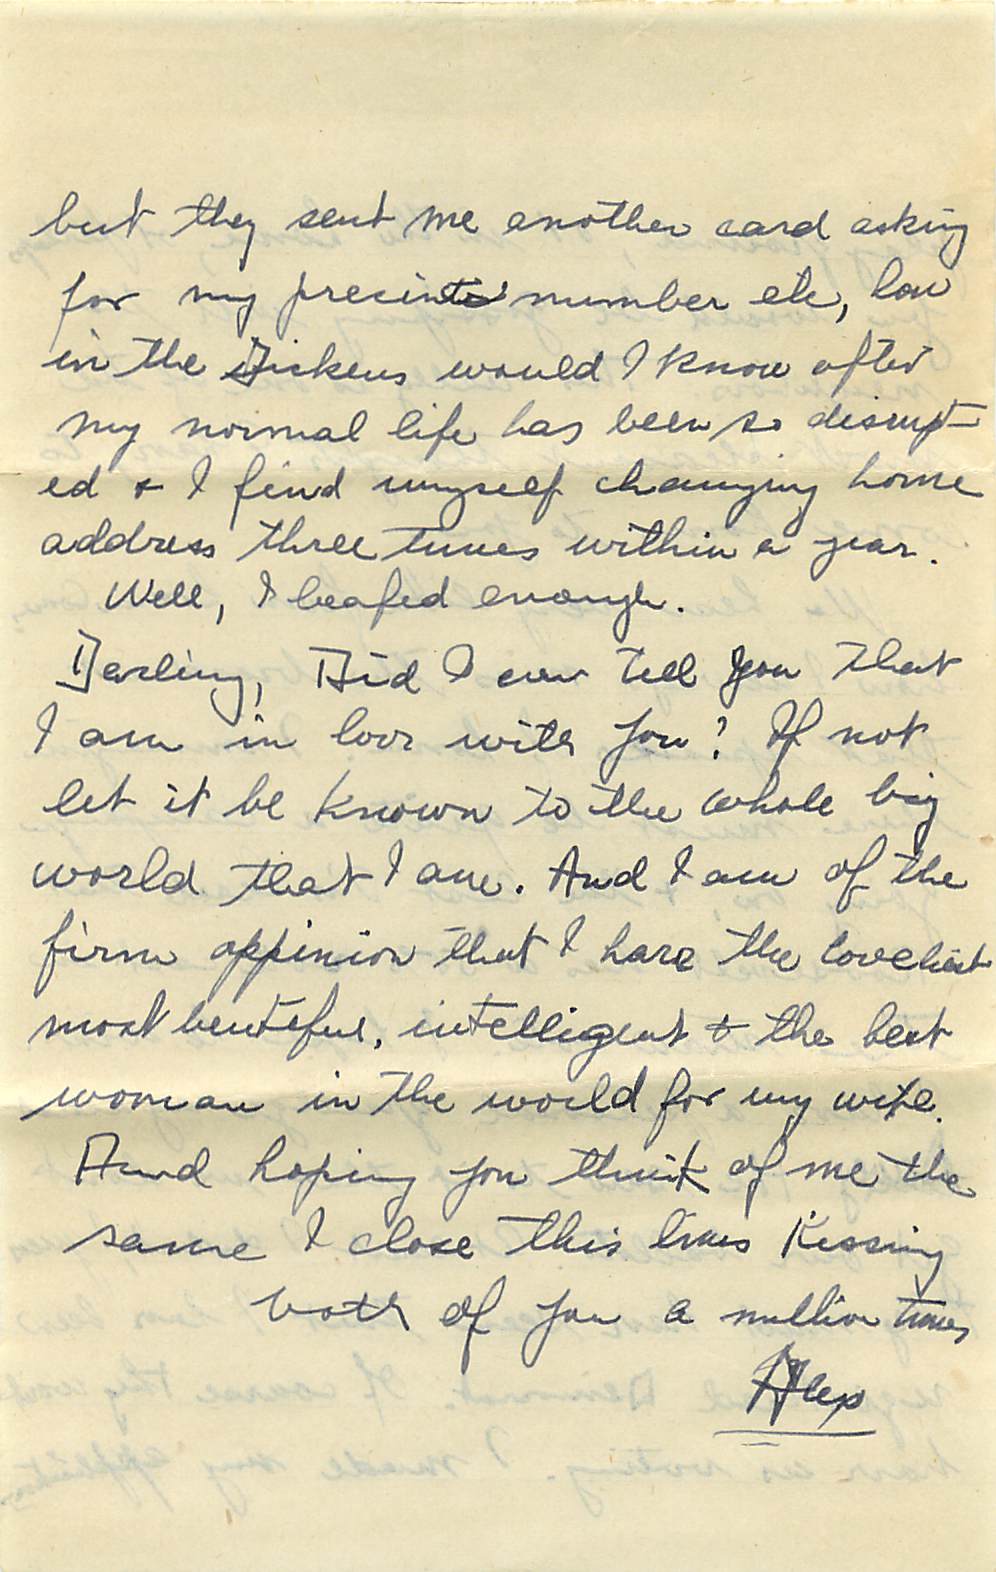 but they sent me another card asking
for my presint number etc, how
in the Dickens would I know after
my normal life has been so disrupt-
ed & I find myself changing home
address three times within a year.
Well, I beafed enough.
Darling, Did I ever tell you that
I am in love with you? If not
let it be known to the whole big
world that I am. And I am of the
firm oppinion that I have the loveliest
most beuteful, intelligent & the best
woman in the world for my wife.
And hoping you think of me the
same I close this lines Kissing
both of you a million times
Alex